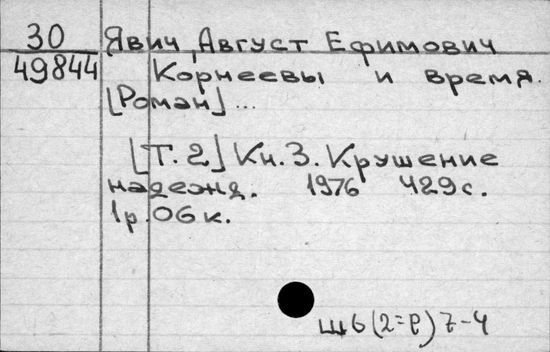 30 Явич Август Ефимович
49844 Корнеевы и время.
[Роман]...
[Т. 2] Кн. 3. Крушение
надежд. 1976 429 с.
1 р. 06 к.
Ш6(2=Р)7-4